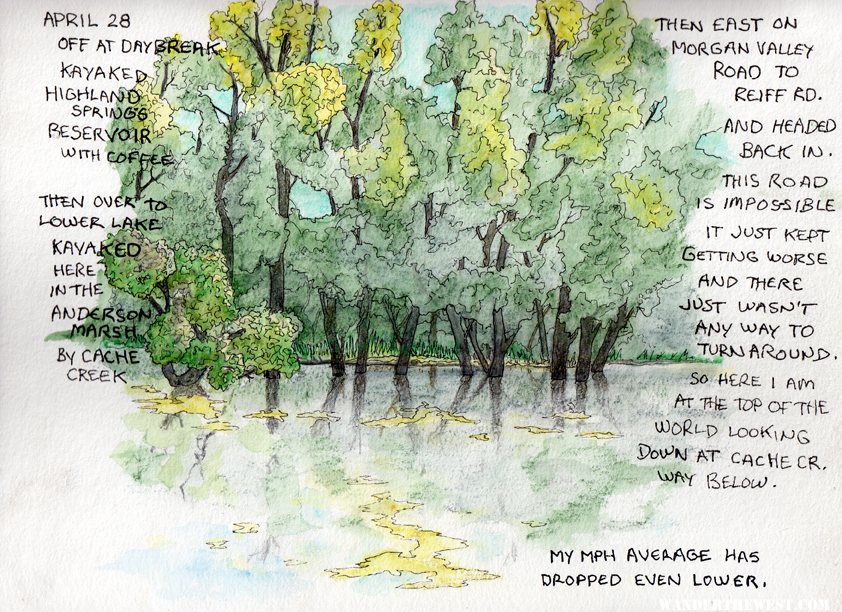 APRIL 28
OFF AT DAYBREAK
KAYAKED
HIGHLAND
SPRINGS
RESERVOIR
WITH COFFEE
THEN OVER TO
LOWER LAKE
KAYAKED
HERE
IN THE
ANDERSON
MARSH
BY CACHE
CREEK
THEN EAST ON
MORGAN VALLEY
ROAD TO
REIFF RD.
AND HEADED
BACK IN.
THIS ROAD
IS IMPOSSIBLE
IT JUST KEPT
GETTING WORSE
AND THERE
JUST WASN'T
ANY WAY TO
TURN AROUND.
SO HERE I AM
AT THE TOP OF THE
WORLD LOOKING
DOWN AT CACHE CR.
WAY BELOW.
MY MPH AVERAGE HAS
DROPPED EVEN LOWER.
WANDERTHEWEST.COM